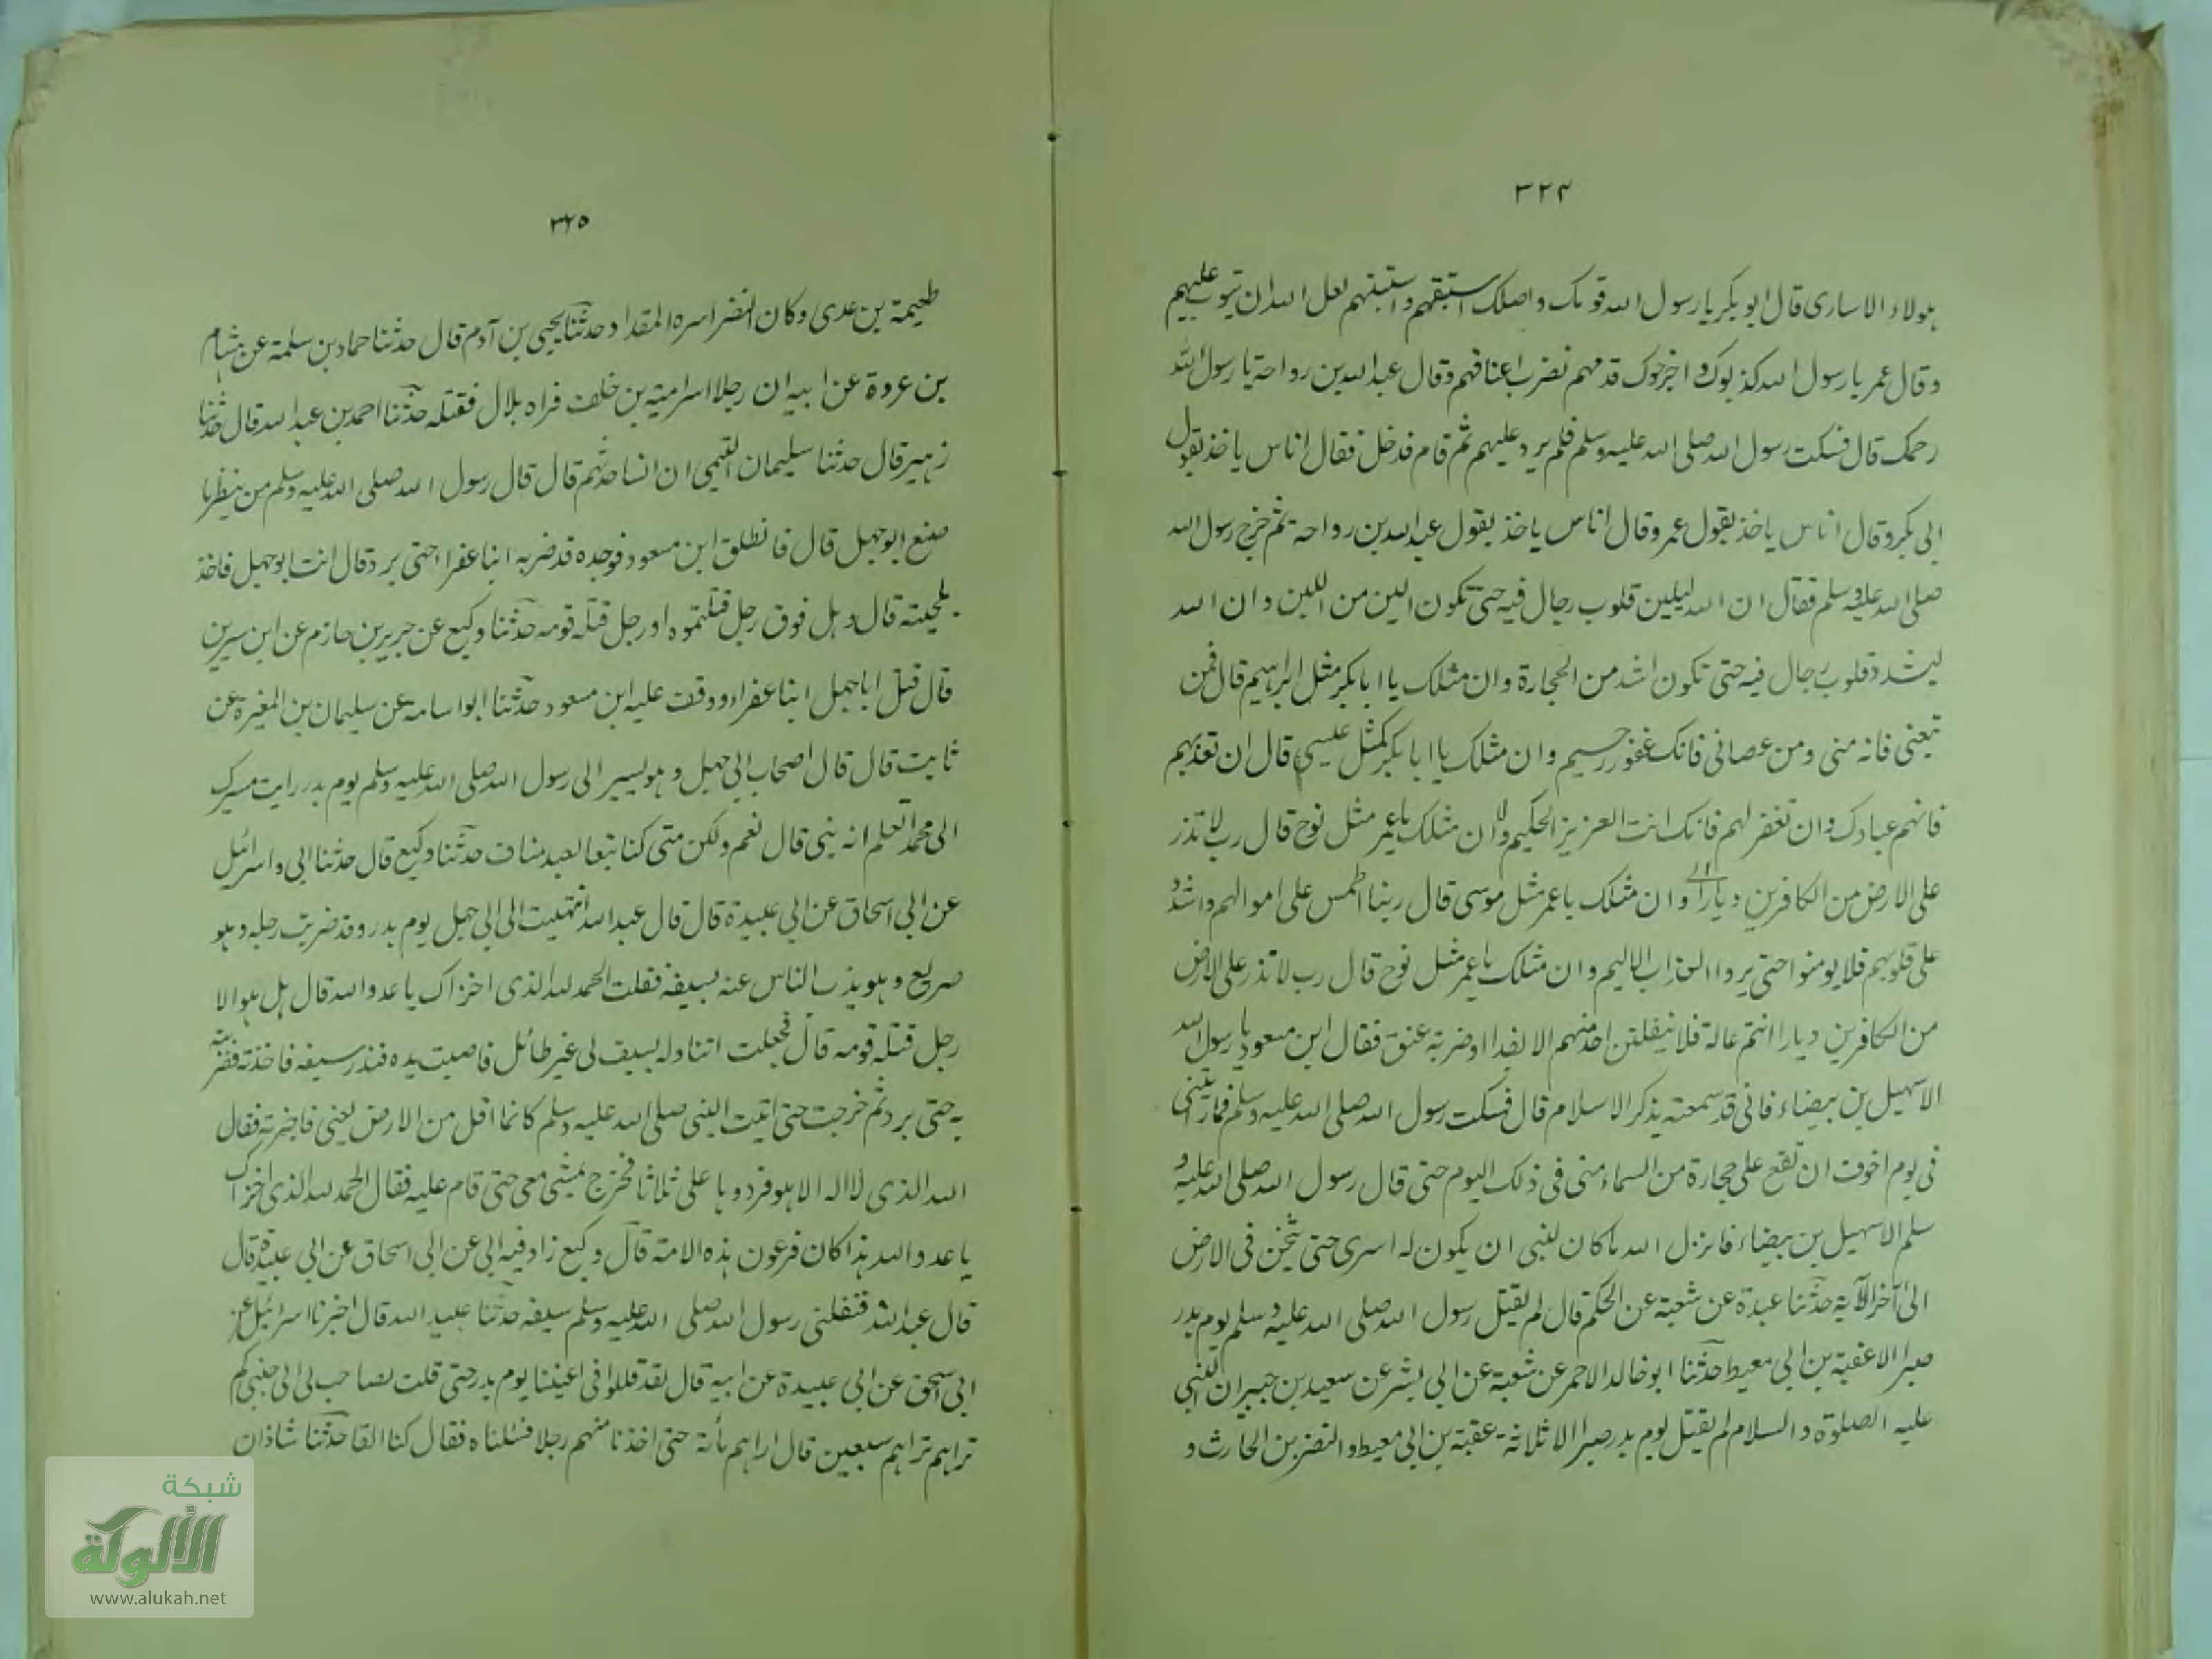 ٣٢٤
هولاء الاسارى قال ابو بكر يا رسول الله قومك واصلك استبقهم واستبنهم لعل الله ان يتوب عليهم
وقال عمر يا رسول الله كذبوك واخرجوك قدمهم نضرب اعناقهم وقال عبد الله بن رواحة يا رسول الله
رحمك قال فسكت رسول الله صلى الله عليه وسلم فلم يرد عليهم ثم قام فدخل فقال اناس ياخذ بقول
ابى بكر وقال اناس ياخذ بقول عمر وقال اناس ياخذ بقول عبد الله بن رواحة ثم خرج رسول الله
صلى الله عليه وسلم فقال ان الله ليلين قلوب رجال فيه حتى تكون الين من اللبن وان الله
ليشدد قلوب رجال فيه حتى تكون اشد من الحجارة وان مثلك يا ابا بكر مثل ابراهيم قال فمن
تبعنى فانه منى ومن عصانى فانك غفور رحيم وان مثلك يا ابا بكر كمثل عيسى قال ان تعذبهم
فانهم عبادك وان تغفر لهم فانك انت العزيز الحكيم وان مثلك يا عمر مثل نوح قال رب لا تذر
على الارض من الكافرين ديارا وان مثلك يا عمر مثل موسى قال ربنا اطمس على اموالهم واشدد
على قلوبهم فلا يومنوا حتى يروا العذاب الاليم وان مثلك يا عمر مثل نوح قال رب لا تذر على الارض
من الكافرين ديارا انتم عالة فلا ينفلتن احد منهم الا بفدا او ضربة عنق فقال ابن مسعود يا رسول الله
الا سهيل بن بيضاء فانى قد سمعته يذكر الاسلام قال فسكت رسول الله صلى الله عليه وسلم فما رأيتنى
فى يوم اخوف ان تقع على حجارة من السماء منى فى ذلك اليوم حتى قال رسول الله صلى الله عليه و
سلم الا سهيل بن بيضاء فانزل الله ما كان لنبى ان يكون له اسرى حتى يثخن فى الارض
الى آخر الآية حدثنا عبدة عن شعبة عن الحكم قال لم يقتل رسول الله صلى الله عليه وسلم يوم بدر
صبرا الا عقبة بن ابى معيط حدثنا ابو خالد الاحمر عن شعبة عن ابى بشر عن سعيد بن جبير ان النبى
عليه الصلوة والسلام لم يقتل يوم بدر صبرا الا ثلاثة عقبة بن ابى معيط والنضر بن الحارث و
٣٢٥
طعيمة بن عدى وكان النضر اسره المقداد حدثنا يحيى بن آدم قال حدثنا حماد بن سلمة عن هشام
بن عروة عن ابيه ان رجلا اسر امية بن خلف فراه بلال فقتله حدثنا احمد بن عبد الله قال حدثنا
زهير قال حدثنا سليمان التيمى ان انسا حدثهم قال قال رسول الله صلى الله عليه وسلم من ينظر ما
صنع ابو جهل قال فانطلق ابن مسعود فوجده قد ضربه ابنا عفرا حتى برد قال انت ابو جهل فاخذ
بلحيته قال وهل فوق رجل قتلتموه او رجل قتله قومه حدثنا وكيع عن جرير بن حازم عن ابن سيرين
قال قتل ابا جهل ابنا عفراء ووقف عليه ابن مسعود حدثنا ابو اسامة عن سليمان بن المغيرة عن
ثابت قال قال اصحاب ابى جهل وهو يسير الى رسول الله صلى الله عليه وسلم يوم بدر رايت مسيرك
الى محمد اتعلم انه نبى قال نعم ولكن متى كنا تبعا لعبد مناف حدثنا وكيع قال حدثنا ابى واسرائيل
عن ابى اسحاق عن ابى عبيدة قال قال عبد الله انتهيت الى ابى جهل يوم بدر وقد ضربت رجله وهو
صريع وهو يذب الناس عنه بسيفه فقلت الحمد لله الذى اخزاك يا عدو الله قال هل هو الا
رجل قتله قومه قال فجعلت اتناوله بسيف لى غير طائل فاصبت يده فندر سيفه فاخذته فضربته
به حتى برد ثم خرجت حتى اتيت النبى صلى الله عليه وسلم كانما اقل من الارض يعنى فاخبرته فقال
الله الذى لا اله الا هو فرددها على ثلاثا فخرج يمشى معى حتى قام عليه فقال الحمد لله الذى اخزاك
يا عدو الله هذا كان فرعون هذه الامة قال وكيع زاد فيه ابى عن ابى اسحاق عن ابى عبيدة قال
قال عبد الله فنفلنى رسول الله صلى الله عليه وسلم سيفه حدثنا عبيد الله قال اخبرنا اسرائيل عن
ابى اسحق عن ابى عبيدة عن ابيه قال لقد قللوا فى اعيننا يوم بدر حتى قلت لصاحب لى الى جنبى كم
تراهم تراهم سبعين قال اراهم مأئة حتى اخذنا منهم رجلا فسئلناه فقال كنا الفا حدثنا شاذان
شبكة
الألوكة
www.alukah.net